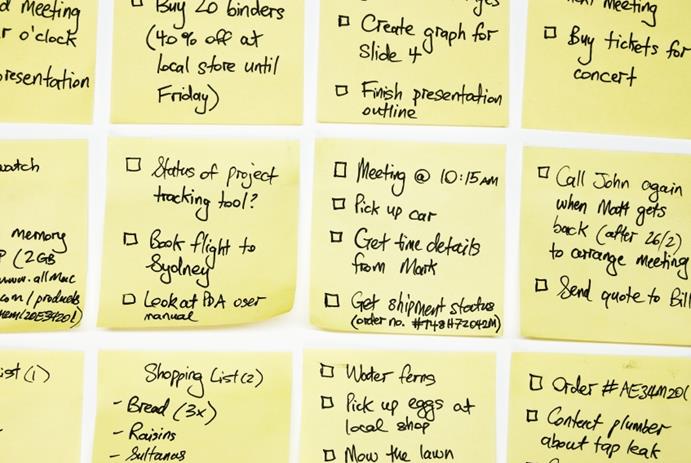 Meeting
o'clock
presentation
Buy 20 binders
(40% off at
local store until
Friday)
☐ Create graph for
Slide 4
☐ Finish presentation
outline
Meeting
☐ Buy tickets for
concert
watch
memory
(2GB
www.allmac.
com/products
☐ Status of project
tracking tool?
☐ Book flight to
Sydney
☐ Look at PDA user
manual
☐ Meeting @ 10:15AM
☐ Pick up car
☐ Get time details
from Mark
☐ Get shipment status
(order no. #T48H72042M)
☐ Call John again
when Matt gets
back (after 26/2)
to arrange meeting
☐ Send quote to Bill
List (1)
Shopping List (2)
- Bread (3x)
- Raisins
- Sultanas
☐ Water ferns
☐ Pick up eggs at
local shop
☐ Mow the lawn
☐ Order #AE34M201
☐ Contact plumber
about tap leak